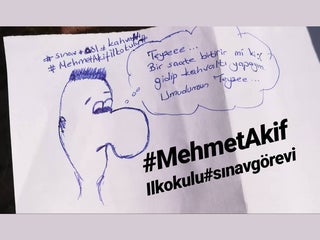 #sınav #Aöl #kahvaltı
#MehmetAkifilkokulu
Teyzeee...
Bir saatte bitirir mi ki
gidip kahvaltı yapayım
Umudumsun Teyzee...
#MehmetAkif
Ilkokulu#sınavgörevi